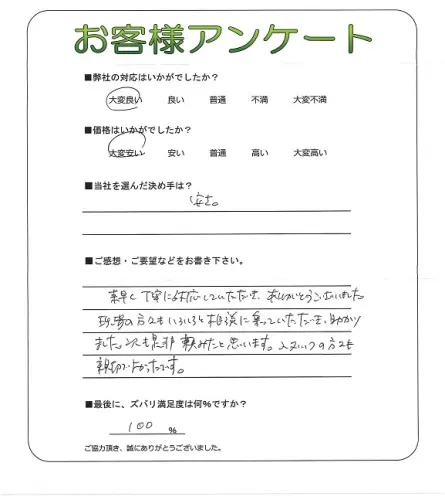 お客様アンケート
■弊社の対応はいかがでしたか？
大変良い 良い 普通 不満 大変不満
■価格はいかがでしたか？
大変安い 安い 普通 高い 大変高い
■当社を選んだ決め手は？
安さ。
■ご感想・ご要望などをお書き下さい。
素早く丁寧に対応していただき、ありがとうございました。
現場の方もいろいろと相談に乗っていただき、助かり
ました。次も是非頼みたいと思います。の方も
親切でよかったです。
■最後に、ズバリ満足度は何%ですか？
100 %
ご協力頂き、誠にありがとうございました。